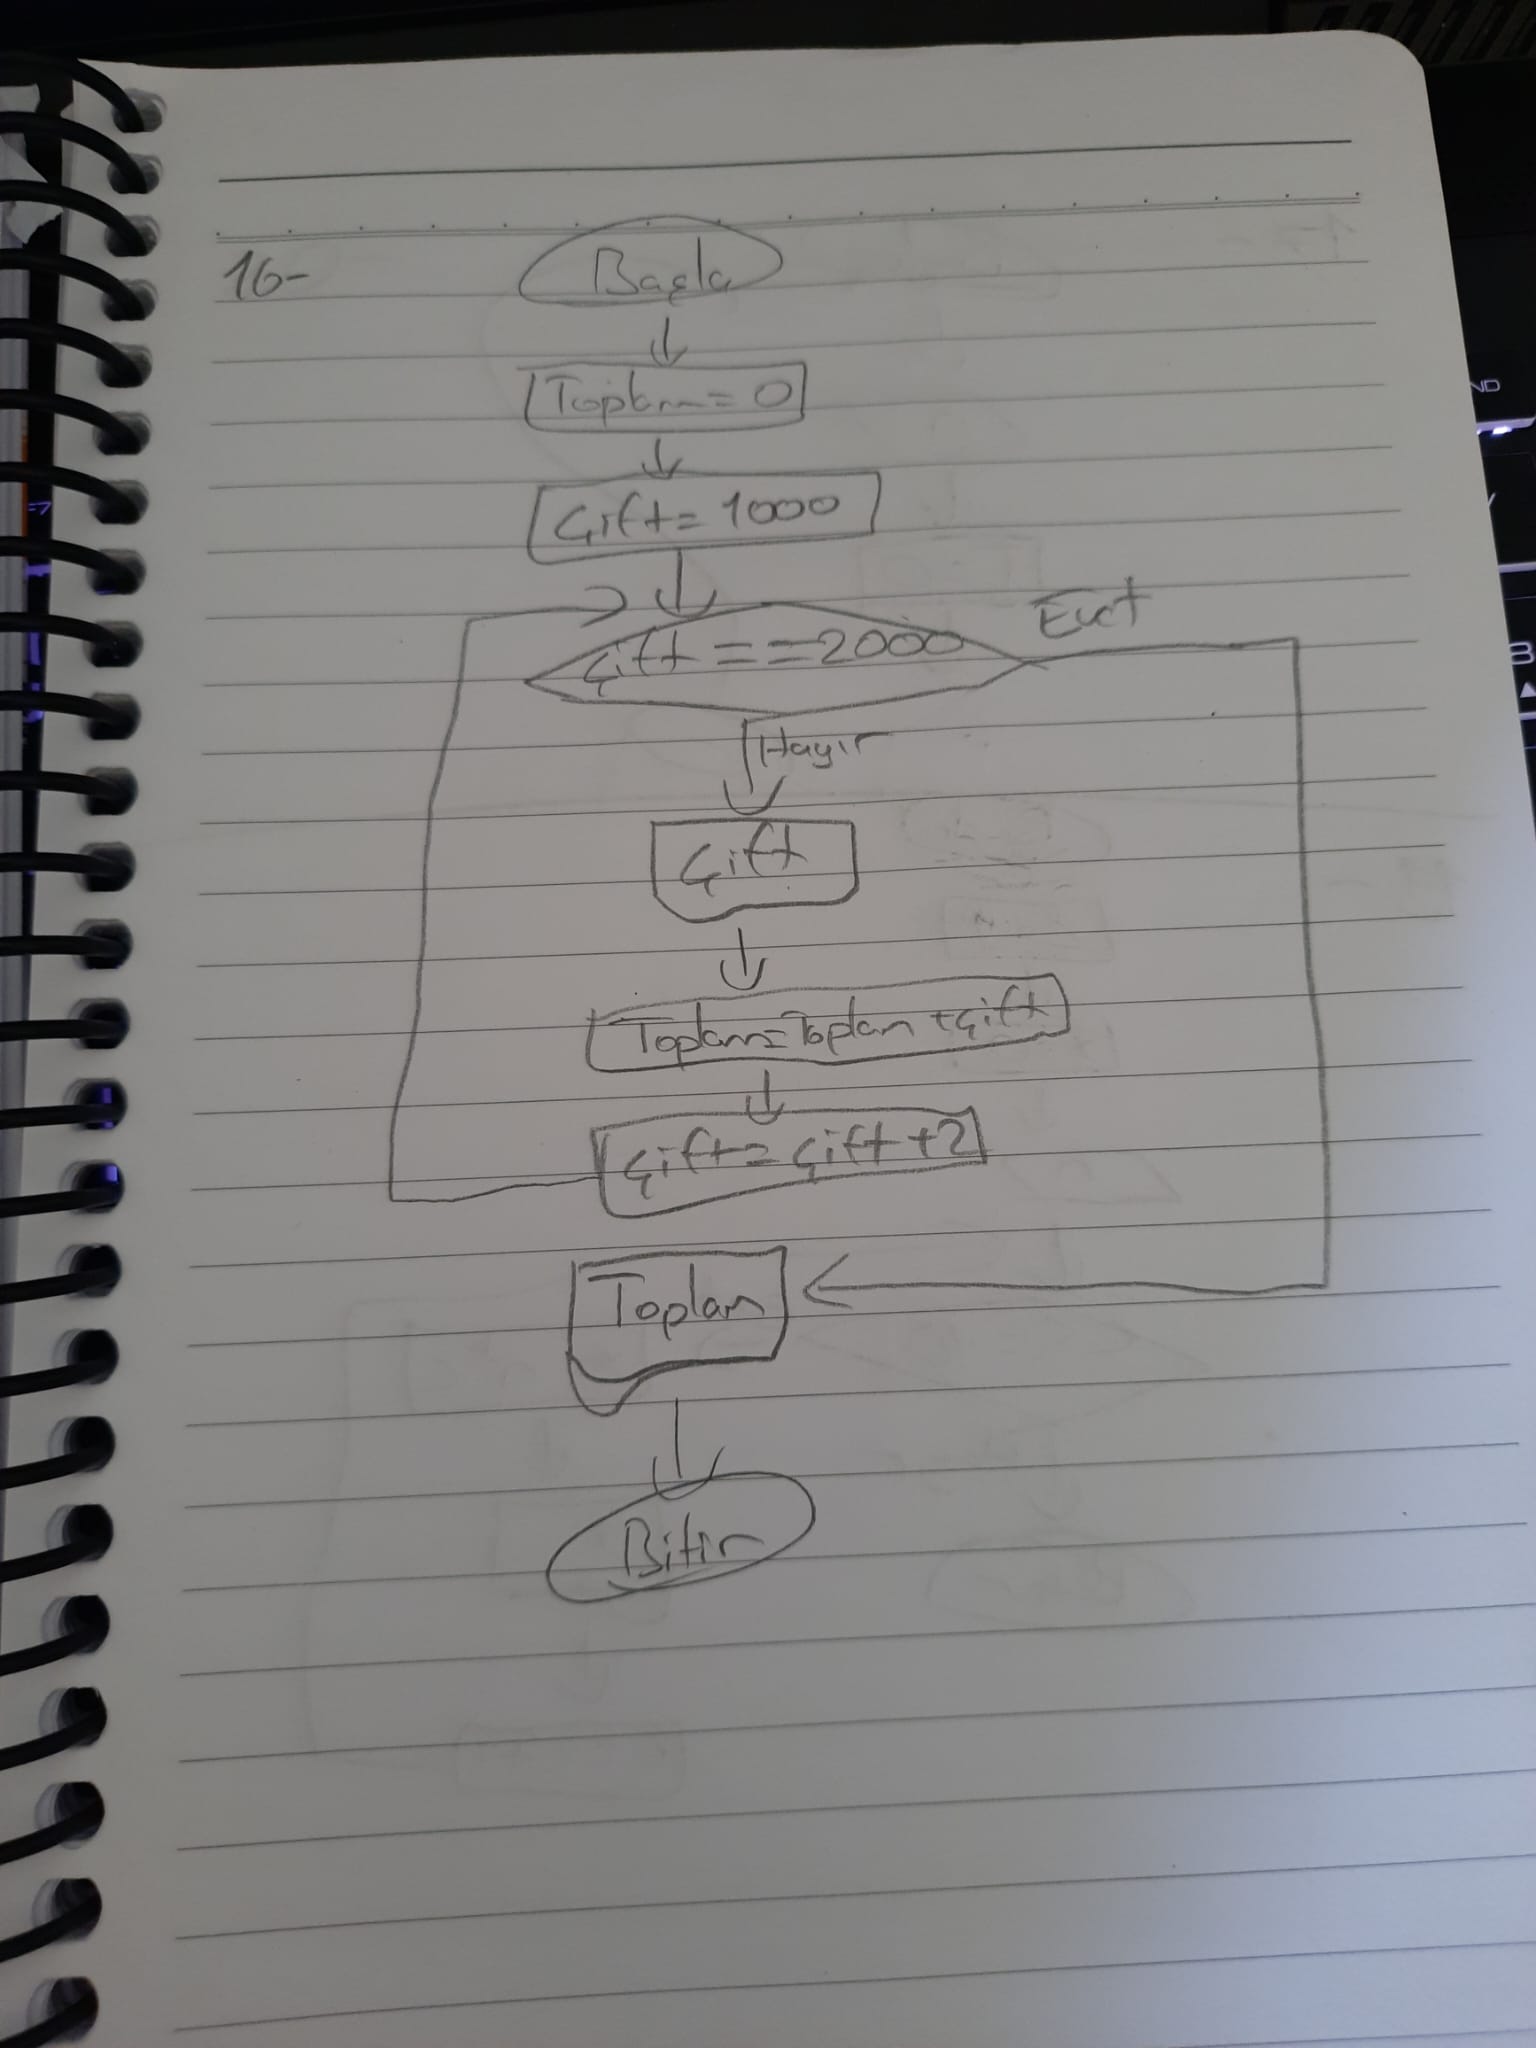 16-
Başla
Toplam = 0
Çift = 1000
Çift == 2000
Evet
Hayır
Çift
Toplam = Toplam + Çift
Çift = Çift + 2
Toplam
Bitir